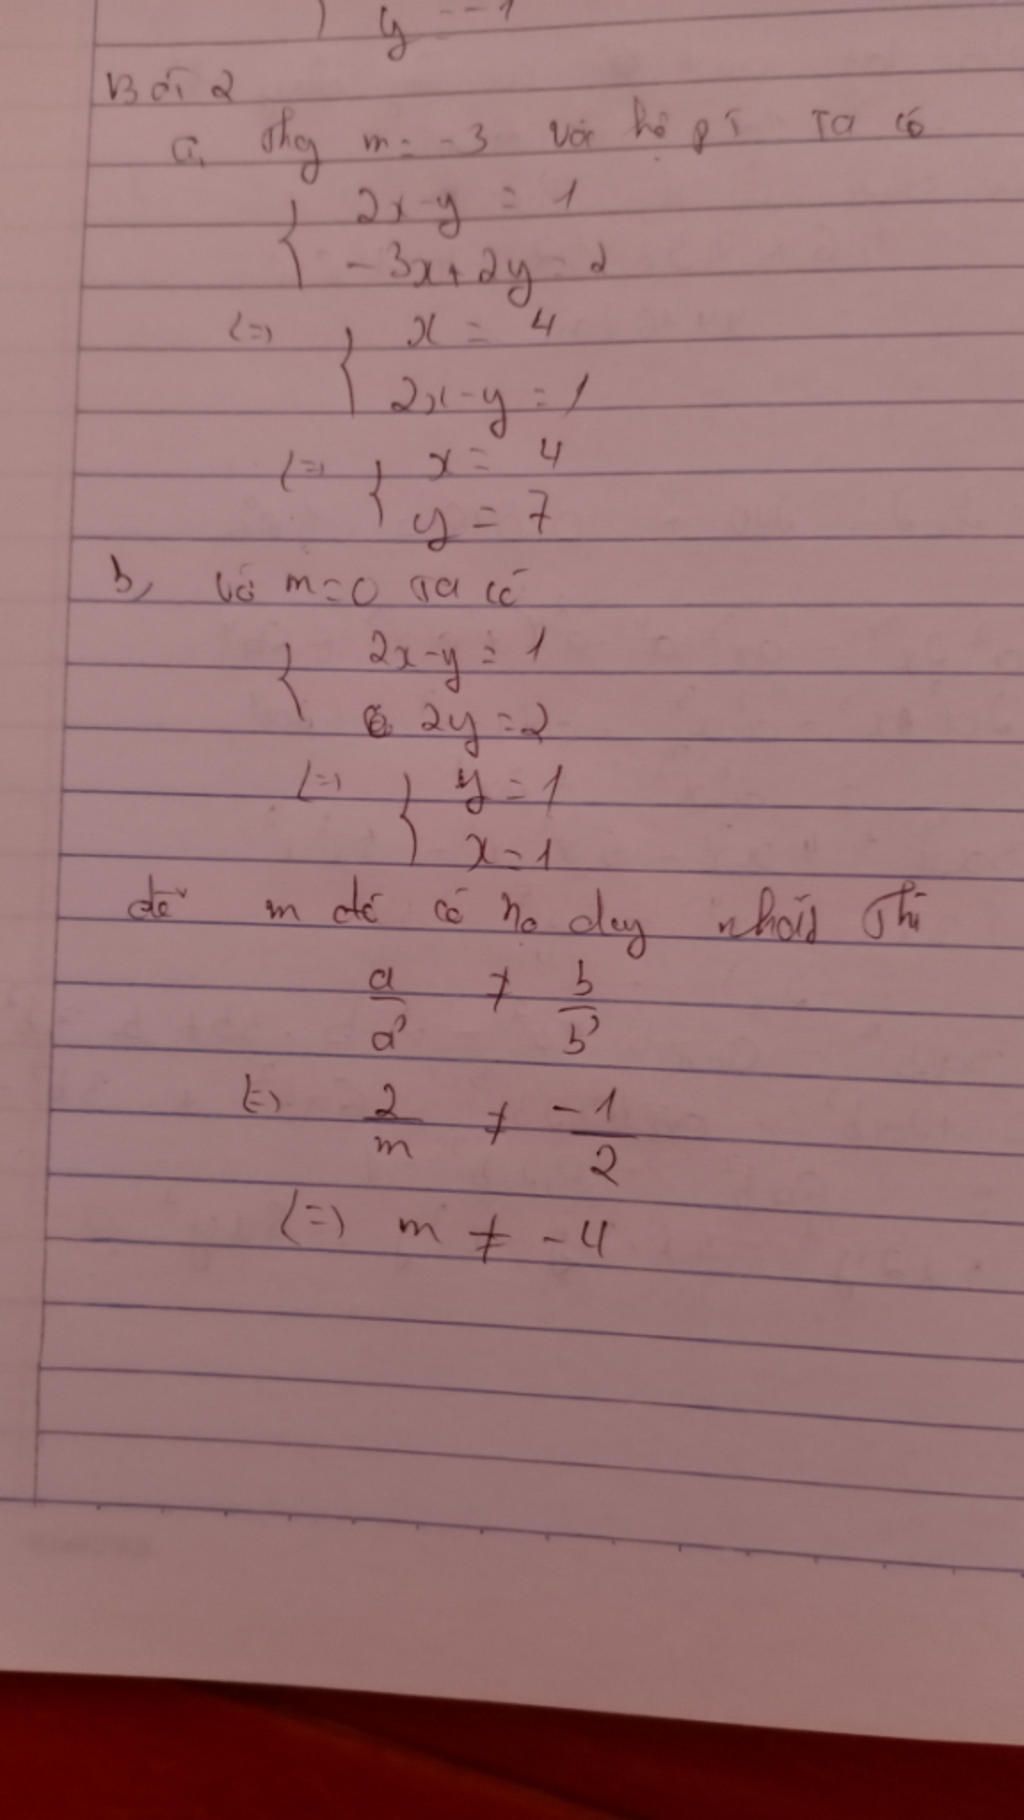 y = -1
Bài 2
a, Thay m = -3 vào hệ pt ta có
{ 2x - y = 1
-3x + 2y = 2
<=> { x = 4
2x - y = 1
<=> { x = 4
y = 7
b, Với m = 0 ta có
{ 2x - y = 1
2y = 2
<=> { y = 1
x = 1
để m để có no duy nhất thì
a/a' ≠ b/b'
<=> 2/m ≠ -1/2
<=> m ≠ -4